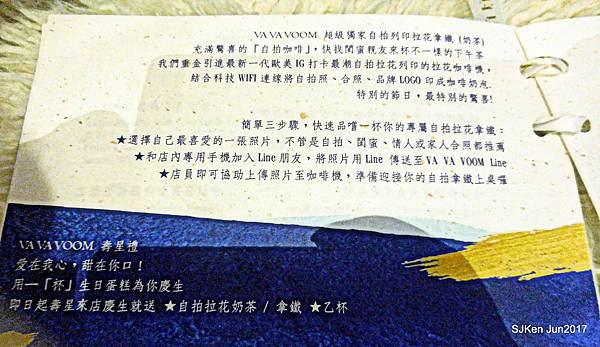 VA VA VOOM 超級獨家自拍列印拉花拿鐵 (奶茶)
充滿驚喜的「自拍咖啡」，快找閨蜜親友來杯不一樣的下午茶
我們重金引進最新一代歐美IG打卡最潮自拍拉花列印的拉花咖啡機，
結合科技WIFI連線將自拍照、合照、品牌LOGO印成咖啡奶泡.
特別的節日，最特別的驚喜!
簡單三步驟，快速品嚐一杯你的專屬自拍拉花拿鐵：
★選擇自己最喜愛的一張照片，不管是自拍、閨蜜、情人或家人合照都推薦
★和店內專用手機加入Line朋友，將照片用Line 傳送至VA VA VOOM Line
★店員即可協助上傳照片至咖啡機，準備迎接你的自拍拿鐵上桌囉
VA VA VOOM 壽星禮
愛在我心，甜在你口！
用一「杯」生日蛋糕為你慶生
即日起壽星來店慶生就送 ★自拍拉花奶茶 / 拿鐵 ★乙杯
SJKen Jun2017